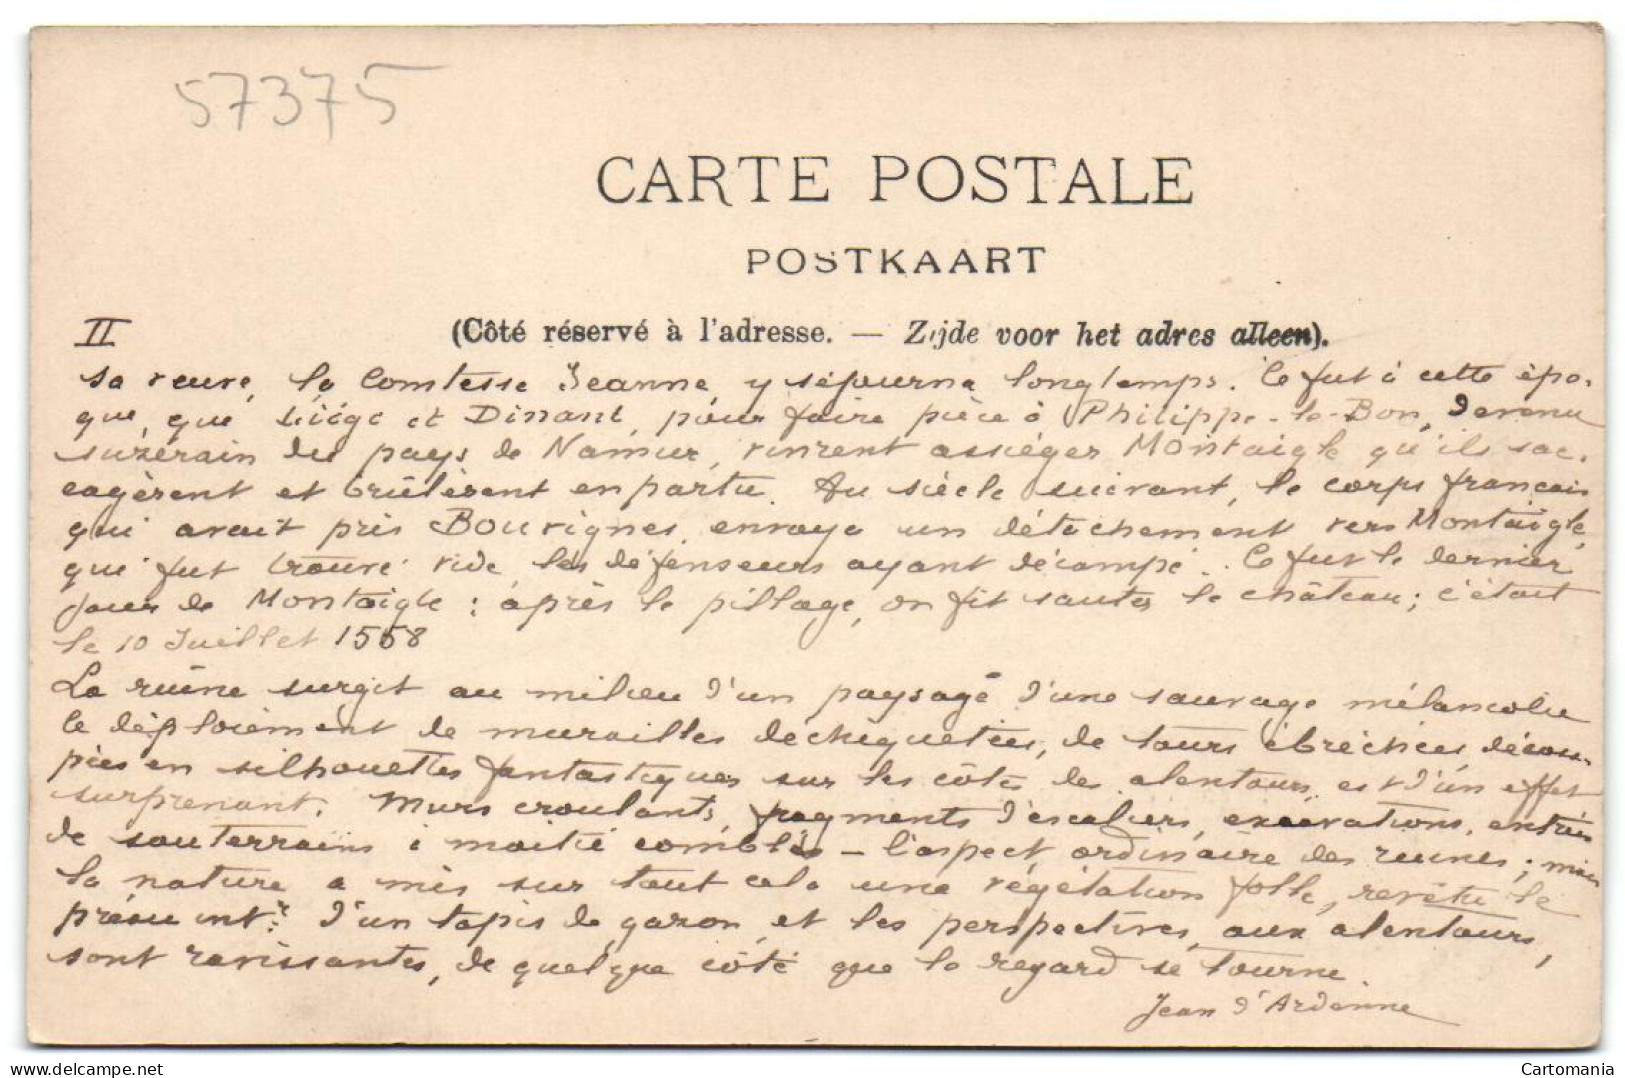 57375
CARTE POSTALE
POSTKAART
(Côté réservé à l'adresse. — Zijde voor het adres alleen).
II
sa veuve, la Comtesse Jeanne, y séjourna longtemps. Ce fut à cette épo-
que, que Liége et Dinant, pour faire pièce à Philippe-le-Bon, devenu
suzerain du pays de Namur, vinrent assiéger Montaigle qu'ils sac-
cagèrent et brûlèrent en partie. Au siècle suivant, le corps français
qui avait pris Bouvignes, envoya un détachement vers Montaigle,
qui fut trouvé vide, les défenseurs ayant décampé. Ce fut le dernier
jour de Montaigle : après le pillage, on fit sauter le château; c'était
le 10 Juillet 1558
La ruine surgit au milieu d'un paysage d'une sauvage mélancolie
le déploiement de murailles déchiquetées, de tours ébréchées, décou-
pées en silhouettes fantastiques sur les côtés des alentours, est d'un effet
surprenant. Murs croulants, fragments d'escaliers, excavations, entrées
de souterrains à moitié comblés — l'aspect ordinaire des ruines; mais
la nature a mis sur tout cela une végétation folle, revêtu le
d'un tapis de gazon, et les perspectives, aux alentours,
sont ravissantes, de quelque côté que le regard se tourne
Jean d'Ardenne
delcampe.net
Cartomania